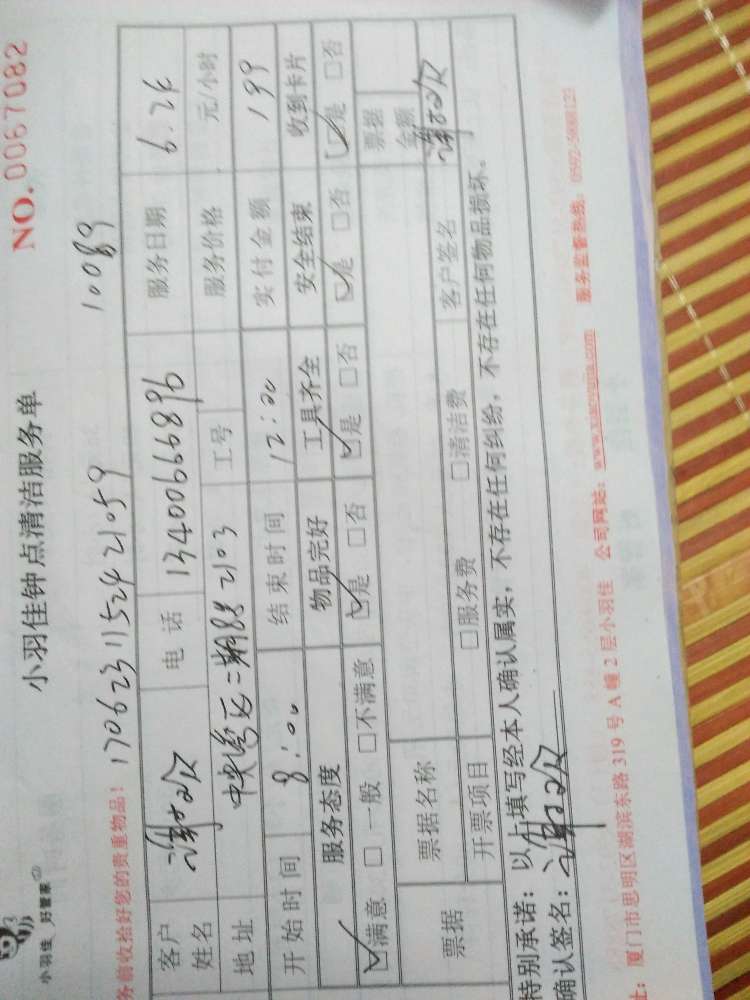 小羽佳 好管家
小羽佳钟点清洁服务单
NO.0067082
务前收拾好您的贵重物品！
1706231152421059
10089
客户姓名 电话 13400666896 服务日期 6.26
地址 中央湾区二期88 2103 工号 服务价格 元/小时
开始时间 8:00 结束时间 12:00 实付金额 199
服务态度 物品完好 工具齐全 安全结束 收到卡片
☑满意 □一般 □不满意 ☑是 □否 ☑是 □否 ☑是 □否 ☑是 □否
票据 票据名称 票据金额
开票项目 □服务费 □清洁费 客户签名
特别承诺：以上填写经本人确认属实，不存在任何纠纷，不存在任何物品损坏。
确认签名：
址：厦门市思明区湖滨东路319号A幢2层小羽佳 公司网站：www.xiaoyujia.com 服务监督热线：